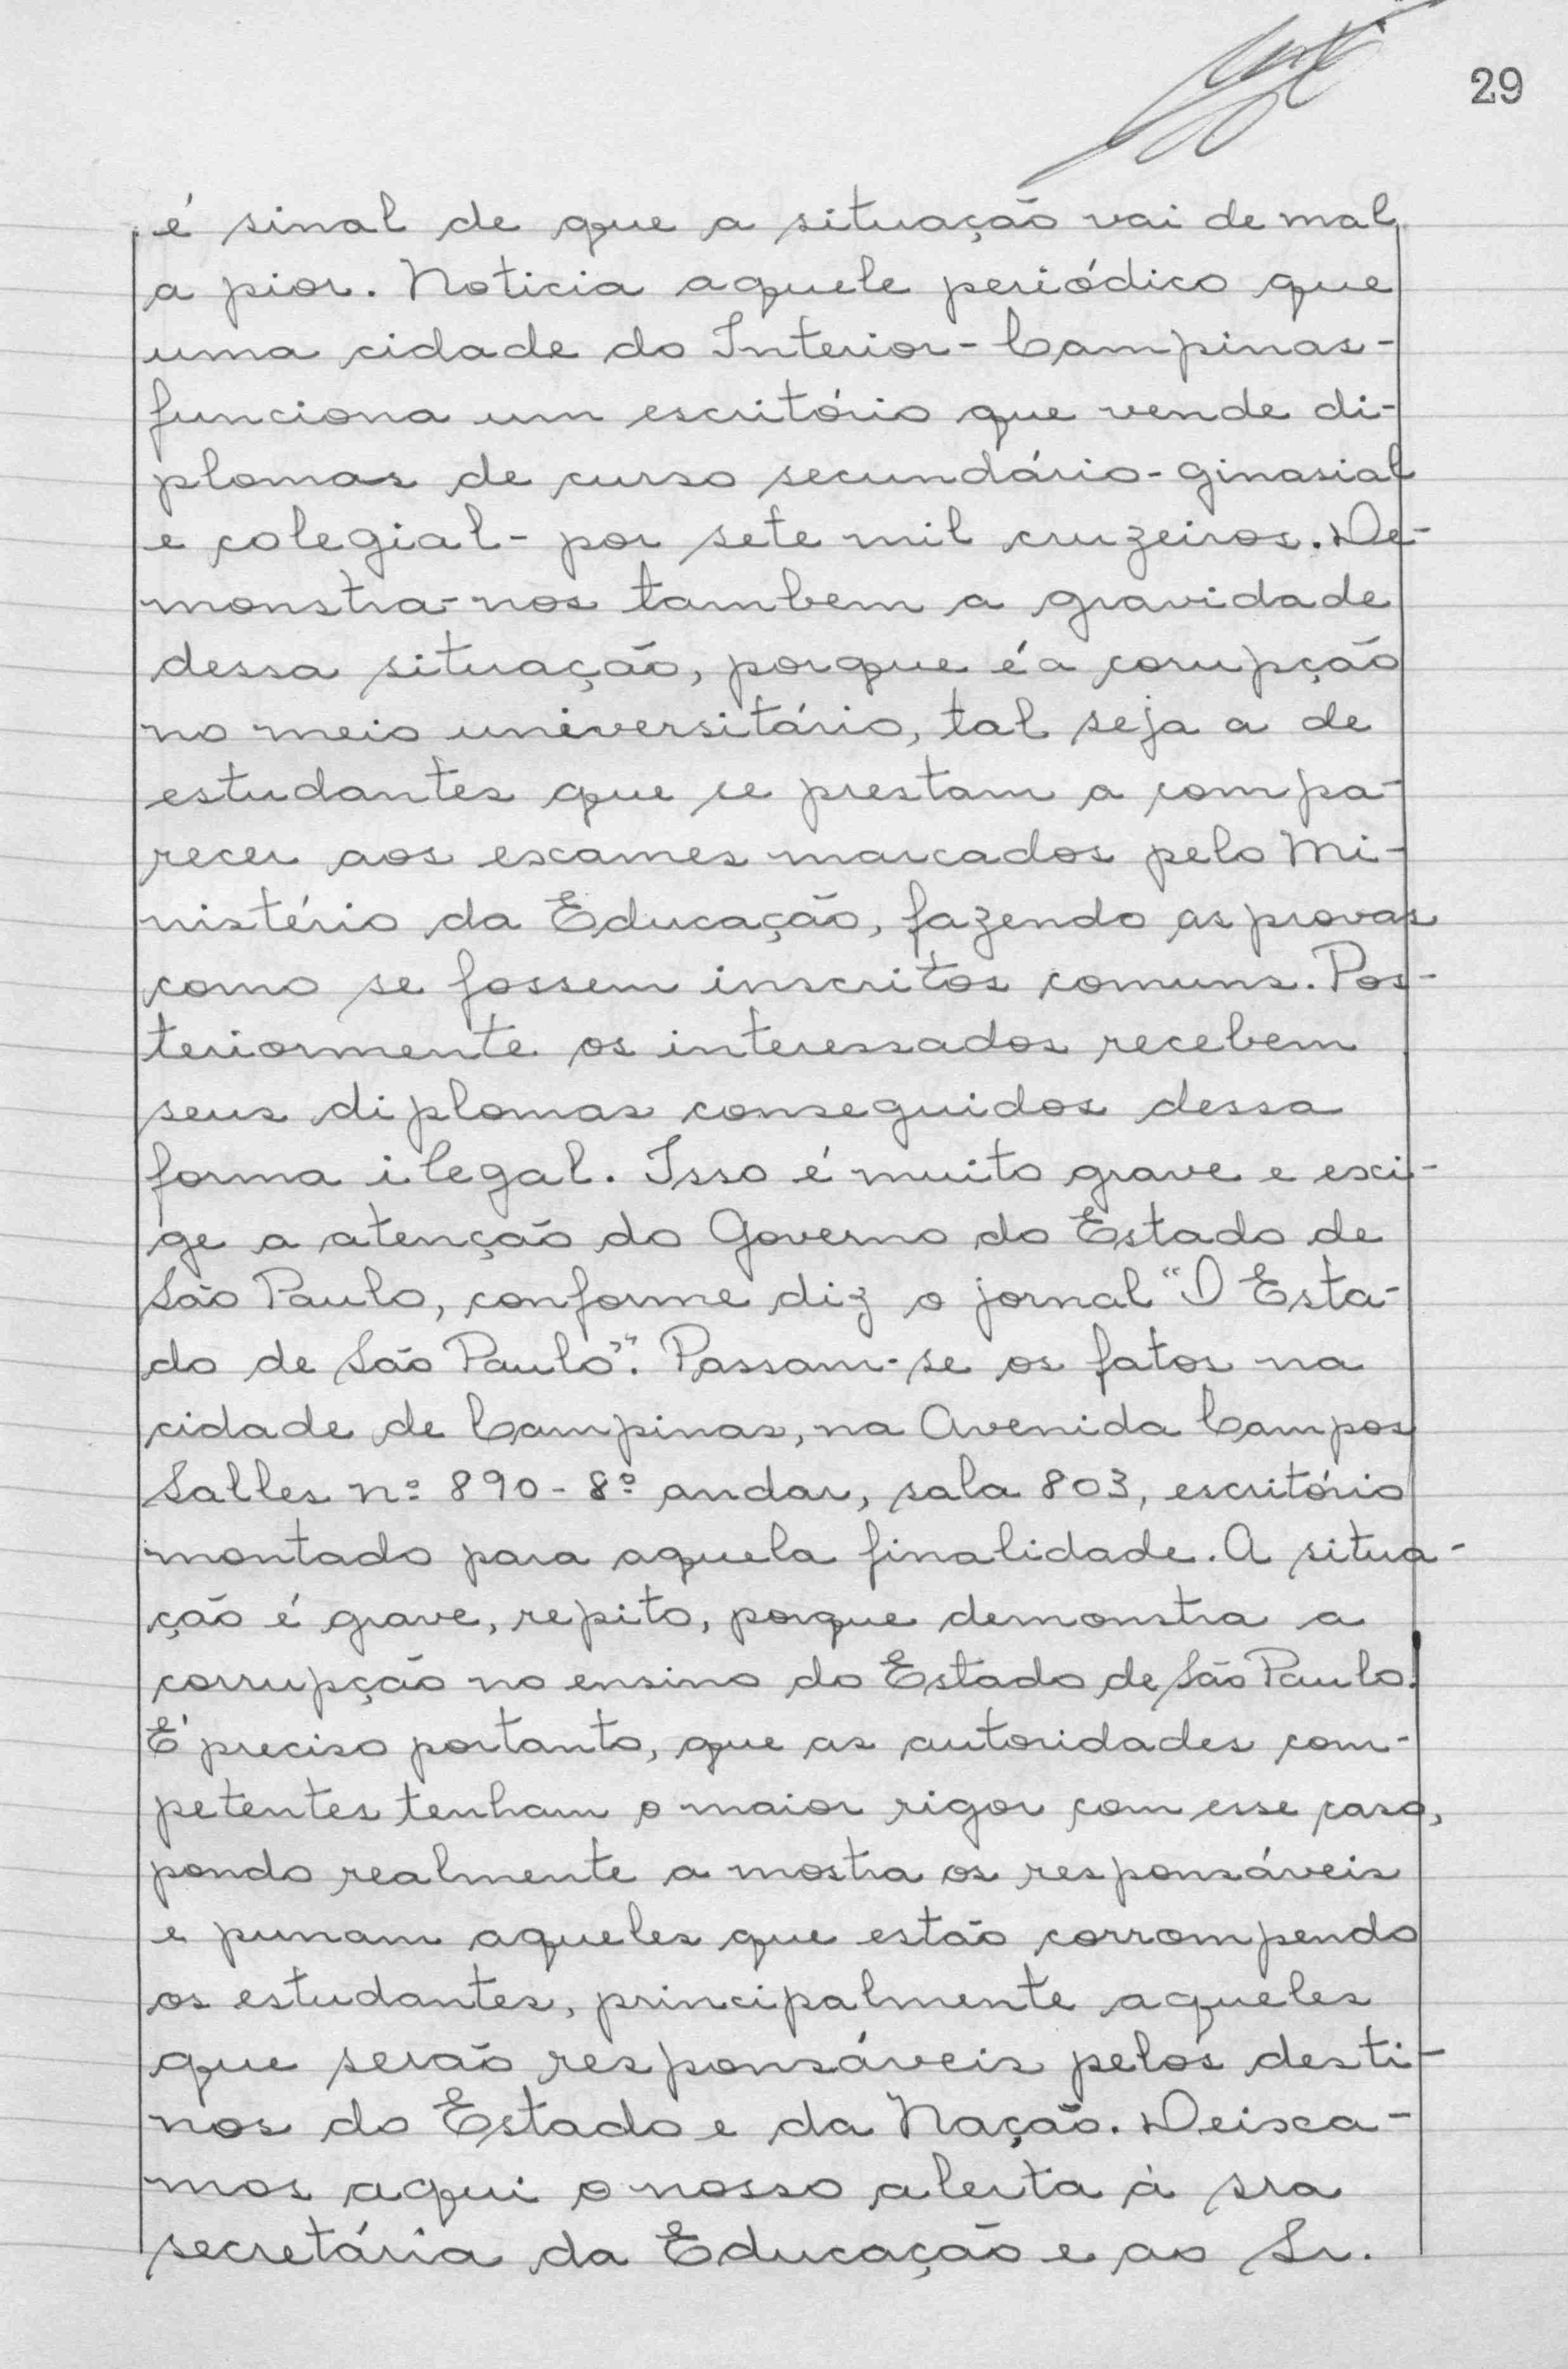 29
é sinal de que a situação vai de mal
a pior. Noticia aquele periódico que
uma cidade do Interior - Campinas -
funciona um escritório que vende di-
plomas de curso secundário - ginasial
e colegial - por sete mil cruzeiros. De-
monstra-nos tambem a gravidade
dessa situação, porque é a corupção
no meio universitário, tal seja a de
estudantes que se prestam a compa-
recer aos exames marcados pelo Mi-
nistério da Educação, fazendo as provas
como se fossem inscritos comuns. Pos-
teriormente os interessados recebem
seus diplomas conseguidos dessa
forma ilegal. Isso é muito grave e exi-
ge a atenção do Governo do Estado de
São Paulo, conforme diz o jornal "O Esta-
do de São Paulo". Passam-se os fatos na
cidade de Campinas, na Avenida Campos
Salles nº 890 - 8º andar, sala 803, escritório
montado para aquela finalidade. A situa-
ção é grave, repito, porque demonstra a
corrupção no ensino do Estado de São Paulo.
É preciso portanto, que as autoridades com-
petentes tenham o maior rigor com esse caso,
pondo realmente a mostra os responsáveis
e punam aqueles que estão corrompendo
os estudantes, principalmente aqueles
que serão responsáveis pelos desti-
nos do Estado e da Nação. Deixa-
mos aqui o nosso alerta à sra
secretária da Educação e ao Sr.